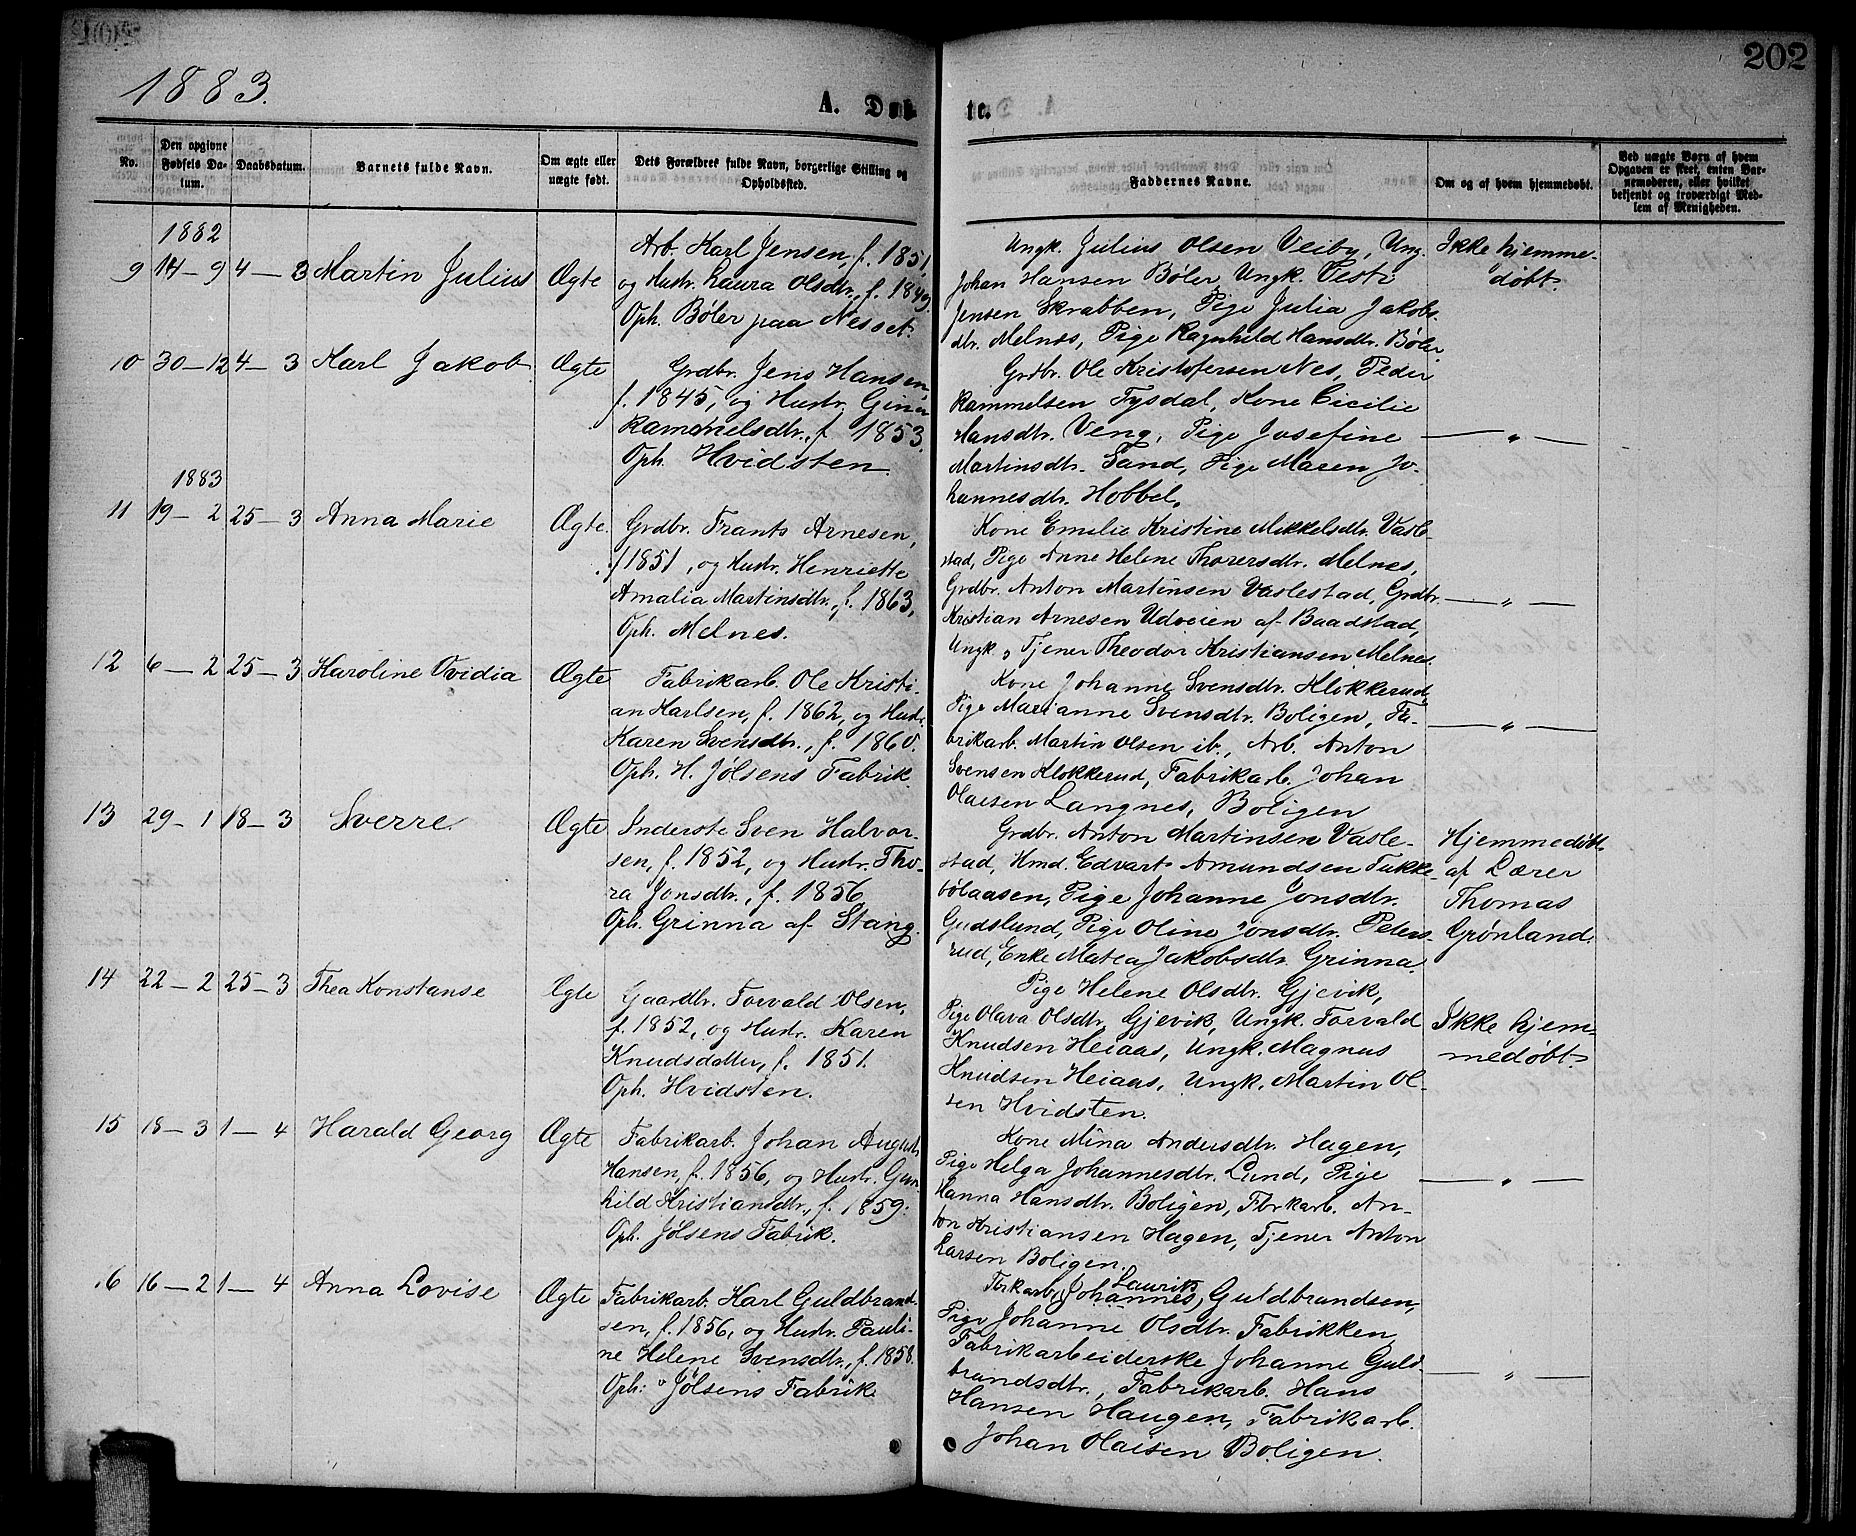 202
1883.
A. Døb
te.
No.
Den opgivne
Fødsels Da-
tum.
Daabsdatum.
Barnets fulde Navn.
Om ægte eller
uægte født.
Dets Forældres fulde Navn, borgerlige Stilling og
Opholdssted.
Faddernes Navne.
Om og af hvem hjemmedøbt.
Ved uægte Børn af hvem
Opgaven er skeet, enten Bar-
nemoderen, eller hvilket
bekjendt og troværdigt Med-
lem af Menigheden.
1882
9 14-9 4-3 Martin Julius Ægte
Arb. Karl Jensen, f. 1851,
og Hustr. Laura Olsdtr., f. 1849.
Oph. Bøler paa Nesset.
Ungk. Julius Olsen Veiby, Ung.
Johan Hansen Bøler, Ungk. Vesti
Jensen Skrabben, Pige Julia Jakobs-
dtr. Melnes, Pige Ragnhild Hansdtr. Bøler
Ikke hjemme-
døbt.
10 30-12 4-3 Karl Jakob Ægte
Grdbr. Jens Hansen,
f. 1845, og Hustr. Gina
Rammelsdtr., f. 1853.
Oph. Hvidsten.
Grdbr. Ole Kristofersen Nes, Peder
Rammelsen Tysdal, Kone Cicilie
Hansdtr. Veng, Pige Josefine
Martinsdtr. Sand, Pige Maren Jo-
hannesdtr. Hobbel.
— „ —
1883
11 19-2 25-3 Anna Marie Ægte.
Grdbr. Frants Arnesen,
f. 1851, og Hustr. Henriette
Amalia Martinsdtr., f. 1863,
Oph. Melnes.
Kone Emilie Kristine Mikkelsdtr. Vasle-
stad, Pige Anne Helene Thorersdtr. Melnes,
Grdbr. Anton Martinsen Vaslestad, Grdbr.
Kristian Arnesen Udveien af Baadstad,
Ungk. og Tjener Theodor Kristiansen Melnes.
— „ —
12 6-2 25-3 Karoline Ovidia Ægte
Fabrikarb. Ole Kristi-
an Karlsen, f. 1862, og Hustr.
Karen Svensdtr., f. 1860.
Oph. H. Jølsens Fabrik.
Kone Johanne Svensdtr. Klokkerud,
Pige Marianne Svensdtr. Boligen, Fa-
brikarb. Martin Olsen ib., Arb. Anton
Svensen Klokkerud, Fabrikarb. Johan
Olaisen Langnes, Boligen
— „ —
13 29-1 18-3 Sverre. Ægte
Inderste Sven Halvor-
sen, f. 1852, og Hustr. Tho-
ra Jonsdtr., f. 1856
Oph. Grinna af Stang.
Grdbr. Anton Martinsen Vasle-
stad, Hmd. Edvart Amundsen Tukke-
bølaasen, Pige Johanne Jonsdtr.
Gudslund, Pige Oline Jonsdtr. Peters-
rud, Enke Matea Jakobsdtr. Grinna.
Hjemmedøbt
af Lærer
Thomas
Grønland.
14 22-2 25-3 Thea Konstanse Ægte
Gaardbr. Torvald Olsen,
f. 1852, og Hustr. Karen
Knudsdatter, f. 1851.
Oph. Hvidsten.
Pige Helene Olsdtr. Gjevik,
Pige Olava Olsdtr. Gjevik, Ungk. Torvald
Knudsen Heiaas, Ungk. Magnus
Knudsen Heiaas, Ungk. Martin Ol-
sen Hvidsten.
Ikke hjem-
medøbt.
15 18-3 1-4 Harald Georg Ægte
Fabrikarb. Johan August
Hansen, f. 1856, og Hustr. Gun-
hild Kristiansdtr., f. 1859.
Oph. Jølsens Fabrik.
Kone Mina Andersdtr. Hagen,
Pige Helga Johannesdtr. Lund, Pige
Hanna Hansdtr. Boligen, Fbrkarb. An-
ton Kristiansen Hagen, Tjener Anton
Larsen Boligen.
— „ —
16 16-2 1-4 Anna Lovise Ægte
Fabrikarb. Karl Guldbrand-
sen, f. 1856, og Hustr. Pauli-
ne Helene Svensdtr., f. 1858.
Oph: Jølsens Fabrik
Laurits
Fbrkarb. (Johannes) Guldbrandsen,
Pige Johanne Olsdtr. Fabrikken,
Fabrikarbeiderske Johanne Guld-
brandsdtr., Fabrikarb. Hans
Hansen Haugen, Fabrikarb.
Johan Olaisen Boligen.
— „ —